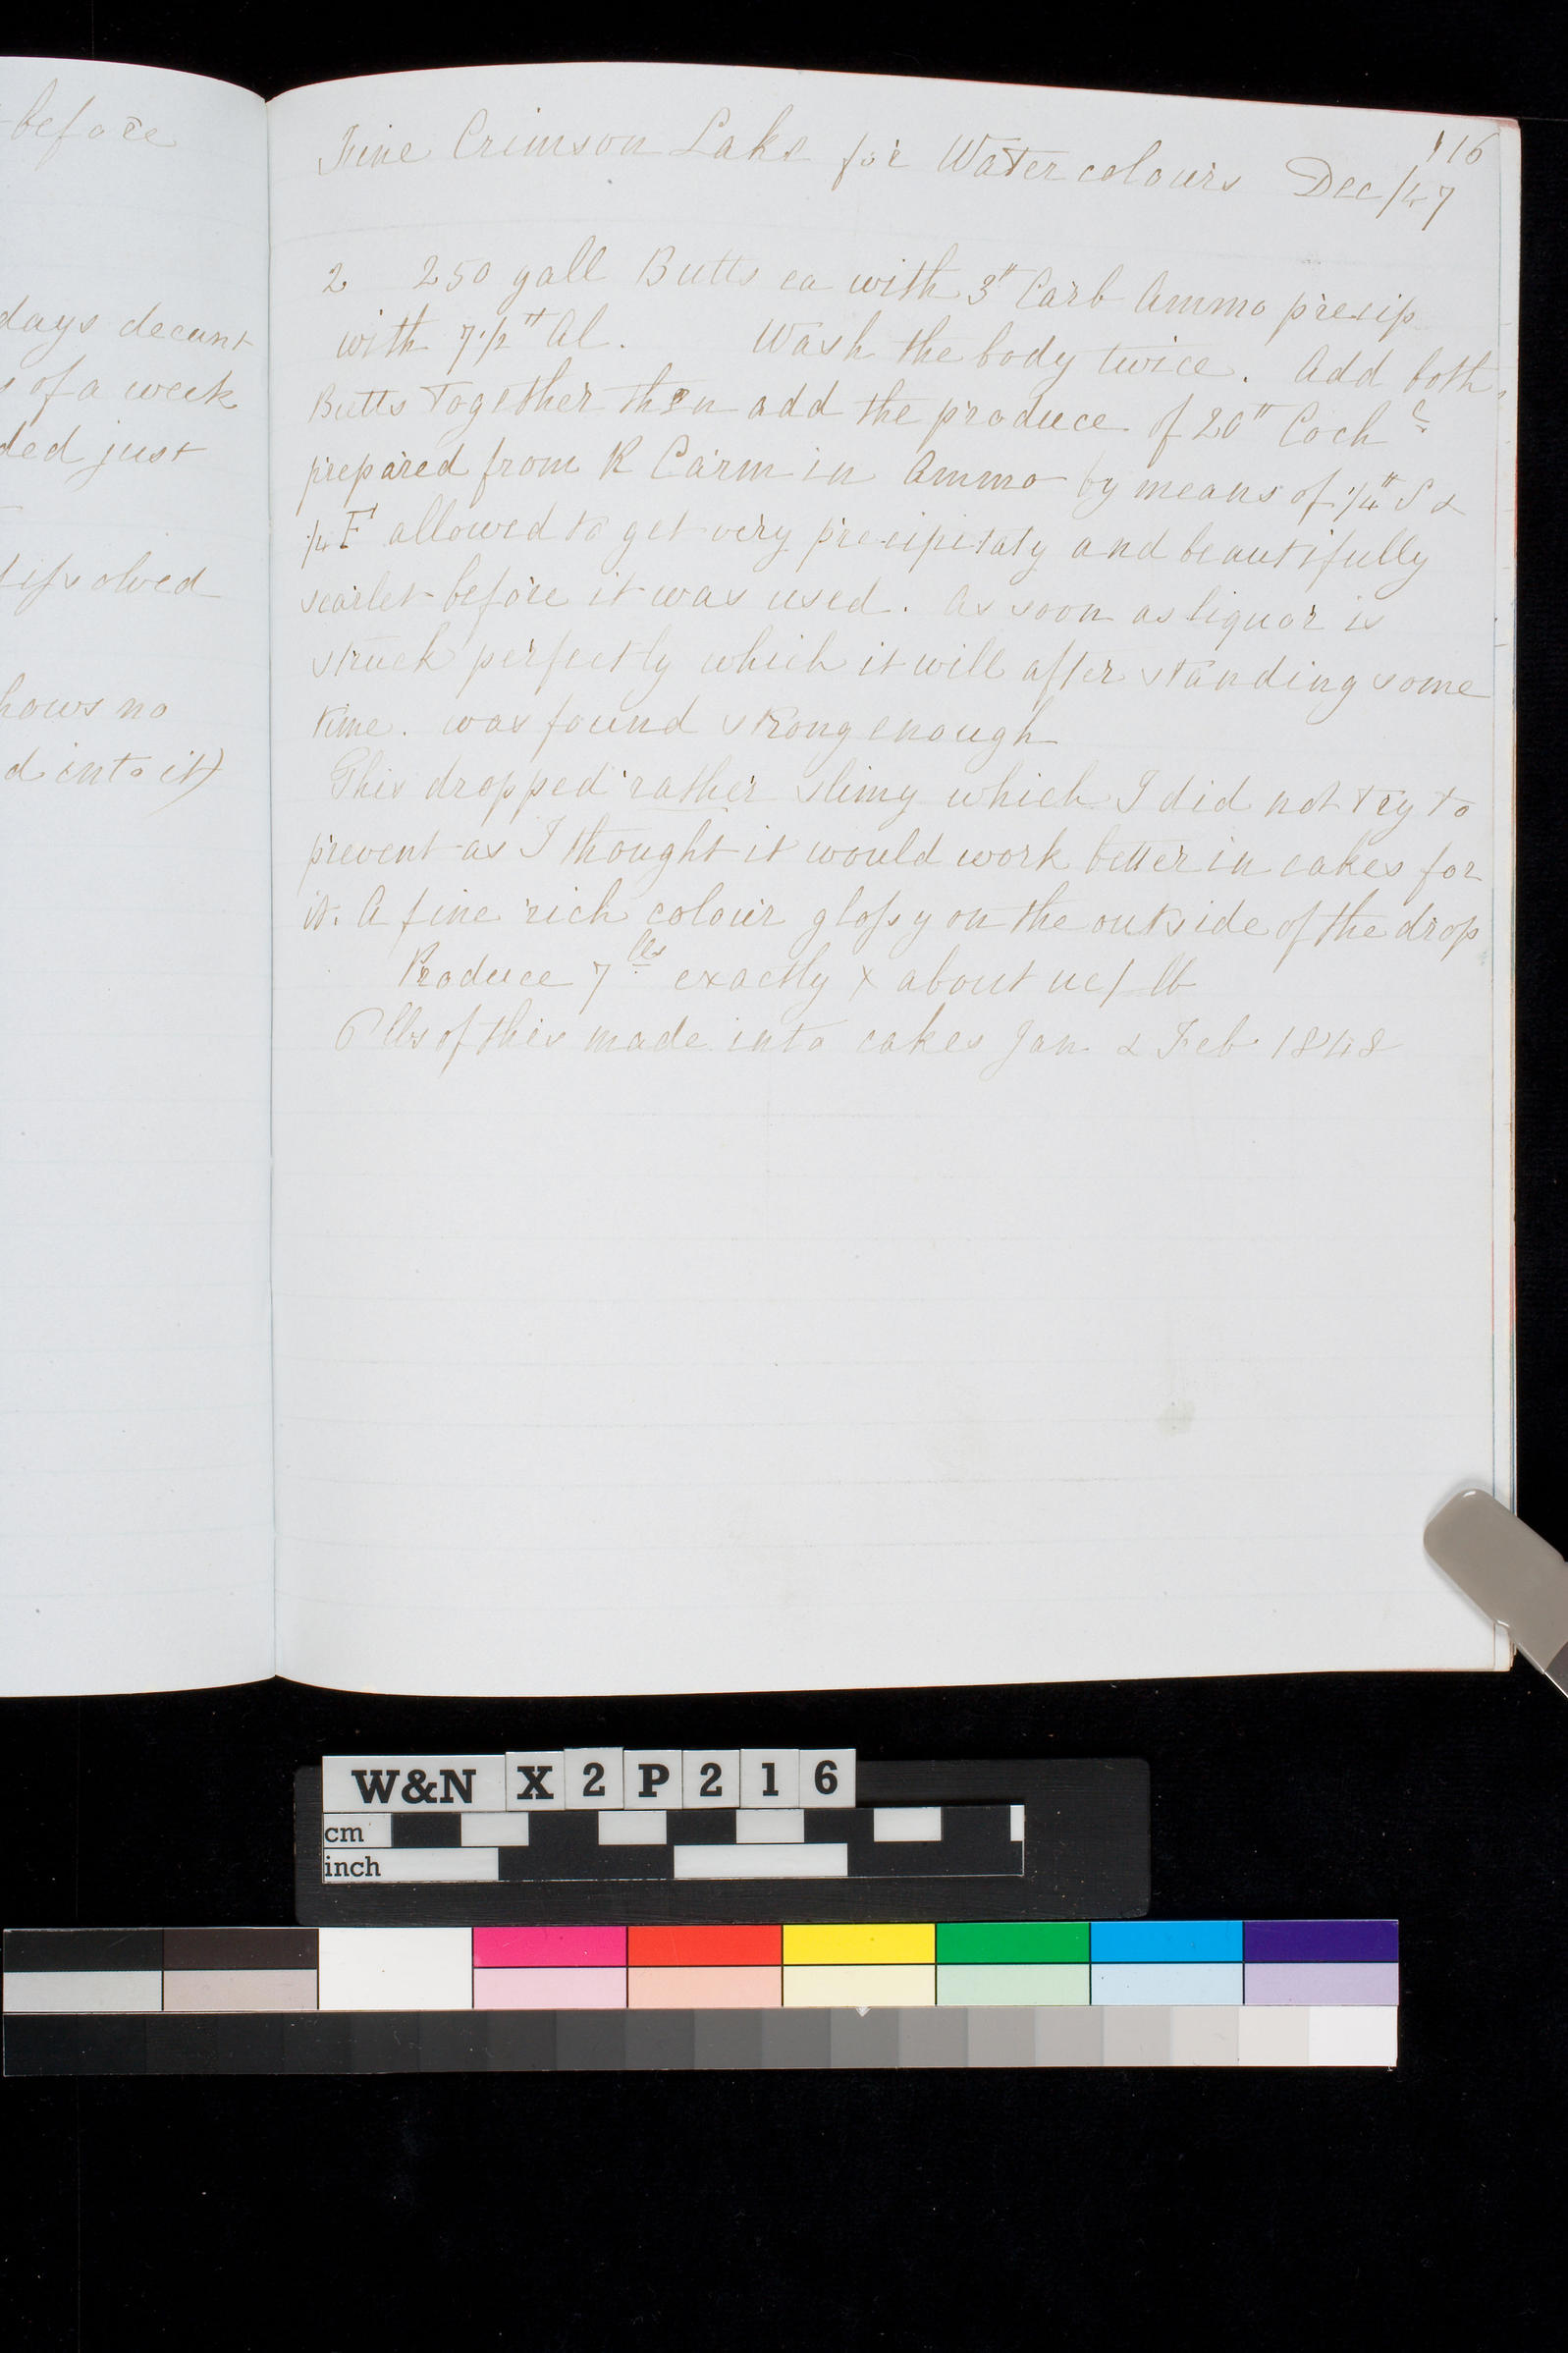 before
days decant
s of a week
ded just
difsolved
hows no
d into it)
116
Fine Crimson Lake for Water colours Dec/47
2 250 gall Butts ea with 3" Carb Ammo precip
with 7 1/2 " Al. Wash the body twice. Add both
Butts Together then add the produce of 20" Coch l
prepared from R Carm in Ammo by means of 1/4" S &
1/4 F allowed to get very precipitaty and beautifully
scarlet before it was used. As soon as liquor is
struck perfectly which it will after standing some
time. was found strong enough
This dropped rather slimy which I did not try to
prevent as I thought it would work better in cakes for
it. A fine rich colour glofsy on the outside of the drop
Produce 7 lbs exactly x about uc/ lb
6 lbs of this made into cakes Jan & Feb 1848
W&N X2P216
cm
inch